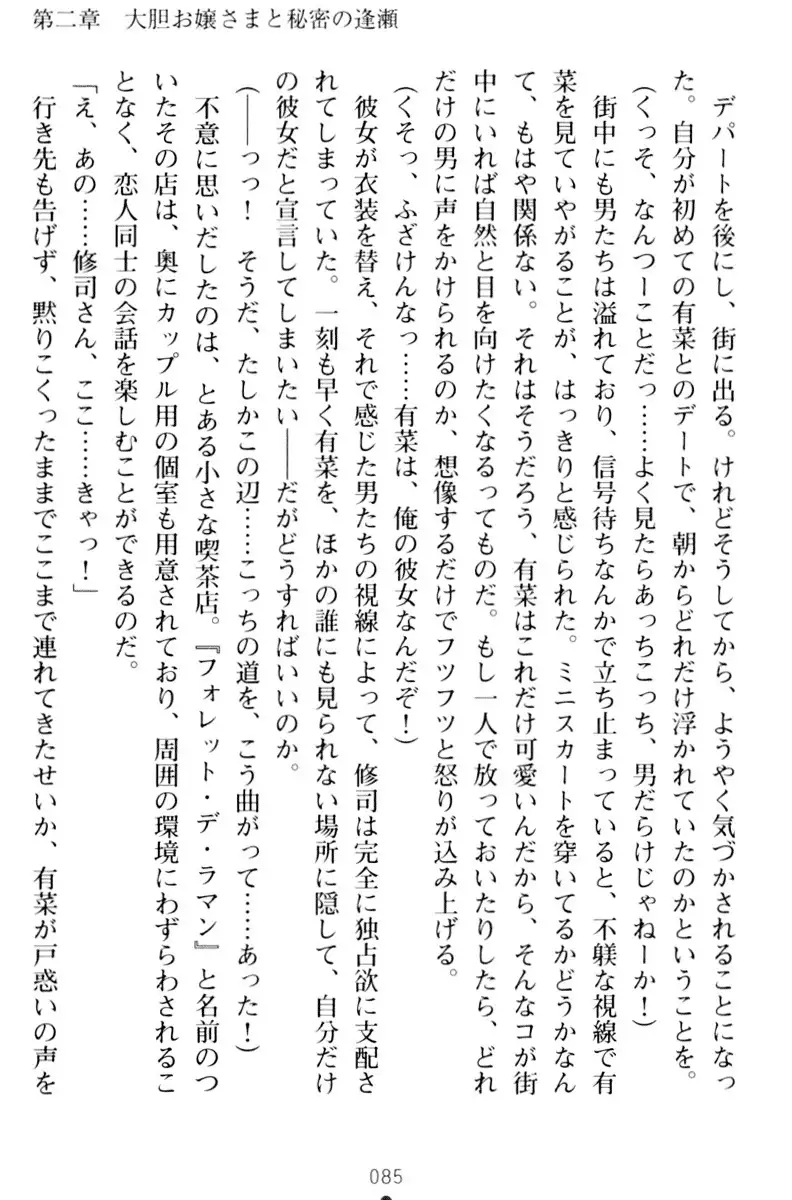 第二章　大胆お嬢さまと秘密の逢瀬
　デパートを後にし、街に出る。けれどそうしてから、ようやく気づかされることになっ
た。自分が初めての有菜とのデートで、朝からどれだけ浮かれていたのかということを。
（くっそ、なんつーことだっ……よく見たらあっちこっち、男だらけじゃねーか！）
　街中にも男たちは溢れており、信号待ちなんかで立ち止まっていると、不躾な視線で有
菜を見ていやがることが、はっきりと感じられた。ミニスカートを穿いてるかどうかなん
て、もはや関係ない。それはそうだろう、有菜はこれだけ可愛いんだから、そんなコが街
中にいれば自然と目を向けたくなるってものだ。もし一人で放っておいたりしたら、どれ
だけの男に声をかけられるのか、想像するだけでフツフツと怒りが込み上げる。
（くそっ、ふざけんなっ……有菜は、俺の彼女なんだぞ！）
　彼女が衣装を替え、それで感じた男たちの視線によって、修司は完全に独占欲に支配さ
れてしまっていた。一刻も早く有菜を、ほかの誰にも見られない場所に隠して、自分だけ
の彼女だと宣言してしまいたい――だがどうすればいいのか。
（――っっ！　そうだ、たしかこの辺……こっちの道を、こう曲がって……あった！）
　不意に思いだしたのは、とある小さな喫茶店。『フォレット・デ・ラマン』と名前のつ
いたその店は、奥にカップル用の個室も用意されており、周囲の環境にわずらわされるこ
となく、恋人同士の会話を楽しむことができるのだ。
「え、あの……修司さん、ここ……きゃっ！」
　行き先も告げず、黙りこくったままでここまで連れてきたせいか、有菜が戸惑いの声を
085